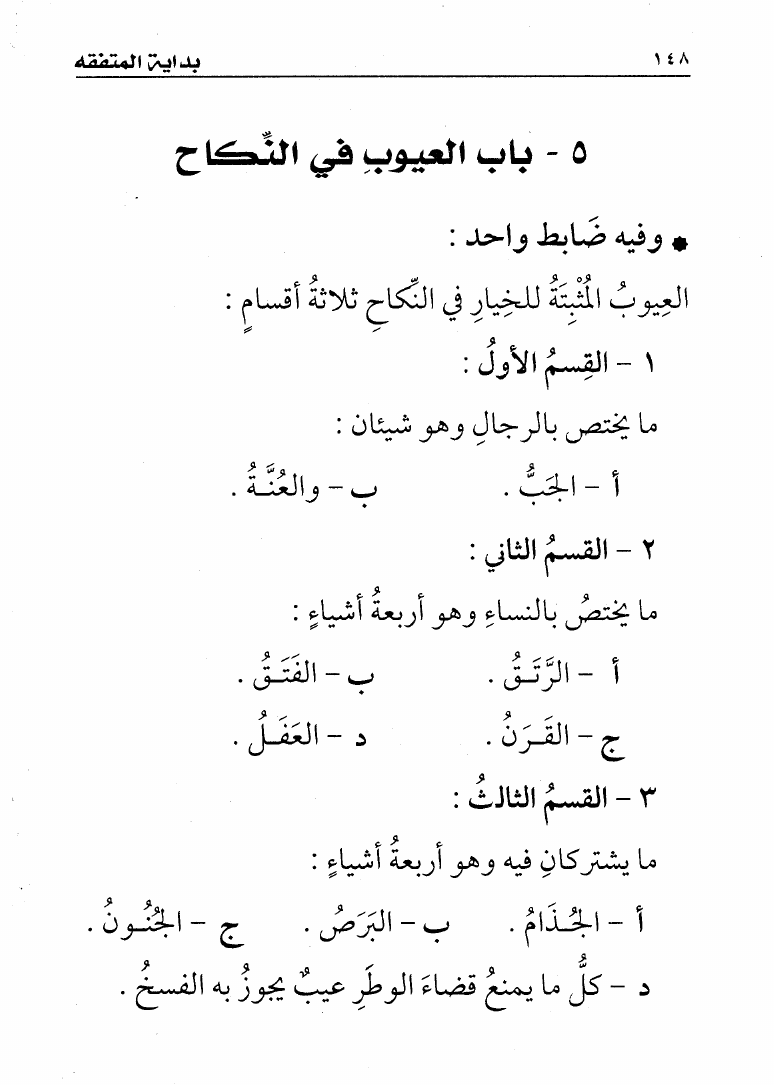 ١٤٨ بداية المتفقه
٥ - باب العيوبِ في النِّكاح
* وفيه ضَابط واحد :
العيوبُ المُثْبِتَةُ للخِيارِ في النِّكاحِ ثلاثةُ أقسامٍ :
١ - القِسمُ الأولُ :
ما يختص بالرجالِ وهو شيئان :
أ - الجَبُّ . ب - والعُنَّةُ .
٢ - القسمُ الثاني :
ما يختصُ بالنساءِ وهو أربعةُ أشياءٍ :
أ - الرَّتَقُ . ب - الفَتَقُ .
ج - القَرَنُ . د - العَفَلُ .
٣ - القسمُ الثالثُ :
ما يشتركانِ فيه وهو أربعةُ أشياءٍ :
أ - الجُذَامُ . ب - البَرَصُ . ج - الجُنُونُ .
د - كلُّ ما يمنعُ قضاءَ الوطَرِ عيبٌ يجوزُ به الفسخُ .